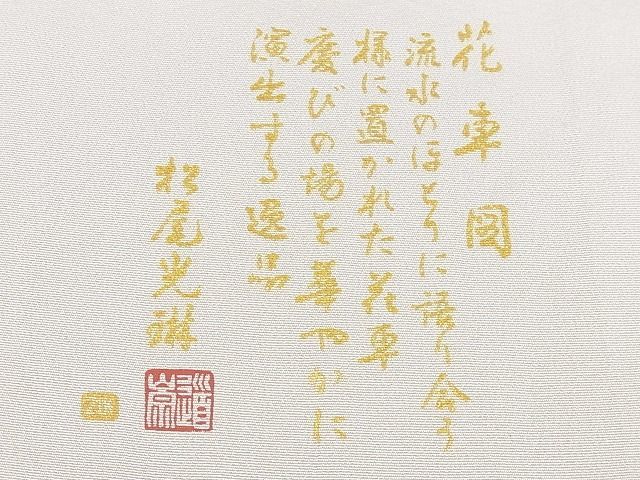 花車図
流水のほとりに語り合う
様に置かれた花車
慶びの場を華やかに
演出する逸品
松尾光琳